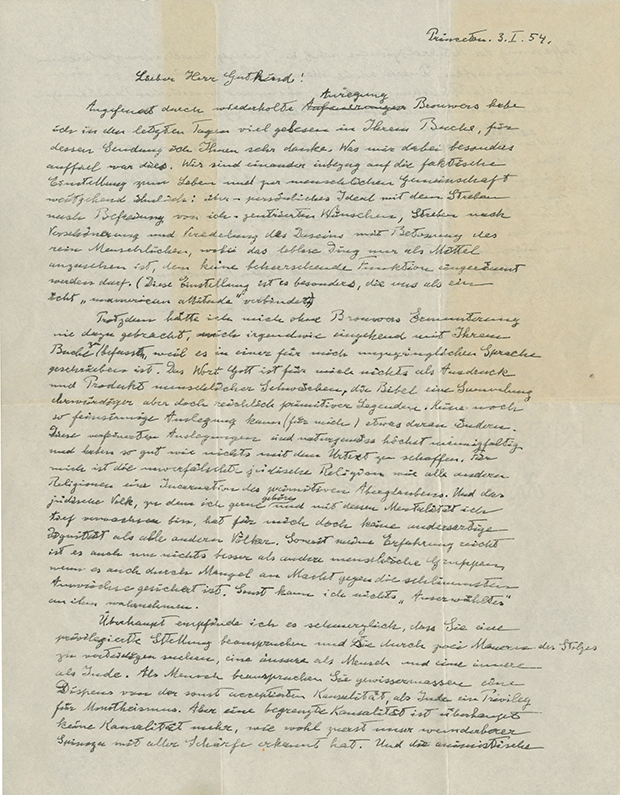 Princeton. 3. I. 54.
Lieber Herr Gutkind!
Anregung
Angefeuert durch wiederholte Brouwers habe
ich in den letzten Tagen viel gelesen in Ihrem Buche, für
dessen Sendung ich Ihnen sehr danke. Was mir dabei besonders
auffiel war dies. Wir sind einander inbezug auf die faktische
Einstellung zum Leben und zur menschlichen Gemeinschaft
weitgehend ähnlich: persönliches Ideal mit dem Streben
nach Befreiung von ich-zentrierten Wünschen, Streben nach
Verschönerung und Veredelung des Daseins mit Betonung des
rein Menschlichen, wobei das leblose Ding nur als Mittel
anzusehen ist, dem keine beherrschende Funktion eingeräumt
werden darf. (Diese Einstellung ist es besonders, die uns als ein
echt "unamerican attitude" verbindet)
Trotzdem hätte ich mich ohne Brouwers Ermunterung
nie dazu gebracht, mich irgendwie eingehend mit Ihrem
Buche zu befassen, weil es in einer für mich unzugänglichen Sprache
geschrieben ist. Das Wort Gott ist für mich nichts als Ausdruck
und Produkt menschlicher Schwächen, die Bibel eine Sammlung
ehrwürdiger aber doch reichlich primitiver Legenden. Keine noch
so feinsinnige Auslegung kann (für mich) etwas daran ändern.
Diese verfeinerten Auslegungen sind naturgemäss höchst mannigfaltig
und haben so gut wie nichts mit dem Urtext zu schaffen. Für
mich ist die unverfälschte jüdische Religion wie alle anderen
Religionen eine Incarnation des primitiven Aberglaubens. Und das
jüdische Volk, zu dem ich gerne gehöre und mit dessen Mentalität ich
tief verwachsen bin, hat für mich doch keine andersartige
Dignität als alle anderen Völker. Soweit meine Erfahrung reicht
ist es auch um nichts besser als andere menschliche Gruppen,
wenn es auch durch Mangel an Macht gegen die schlimmsten
Auswüchse gesichert ist. Sonst kann ich nichts „Auserwähltes"
an ihm wahrnehmen.
Überhaupt empfinde ich es schmerzlich, dass Sie eine
privilegierte Stellung beanspruchen und sie durch zwei Mauern des Stolzes
zu verteidigen suchen, eine äussere als Mensch und eine innere
als Jude. Als Mensch beanspruchen Sie gewissermassen einen
Dispens von der sonst acceptierten Kausalität, als Jude ein Privileg
für Monotheismus. Aber eine begrenzte Kausalität ist überhaupt
keine Kausalität mehr, wie wohl zuerst unser wunderbarer
Spinoza mit aller Schärfe erkannt hat. Und die animistische